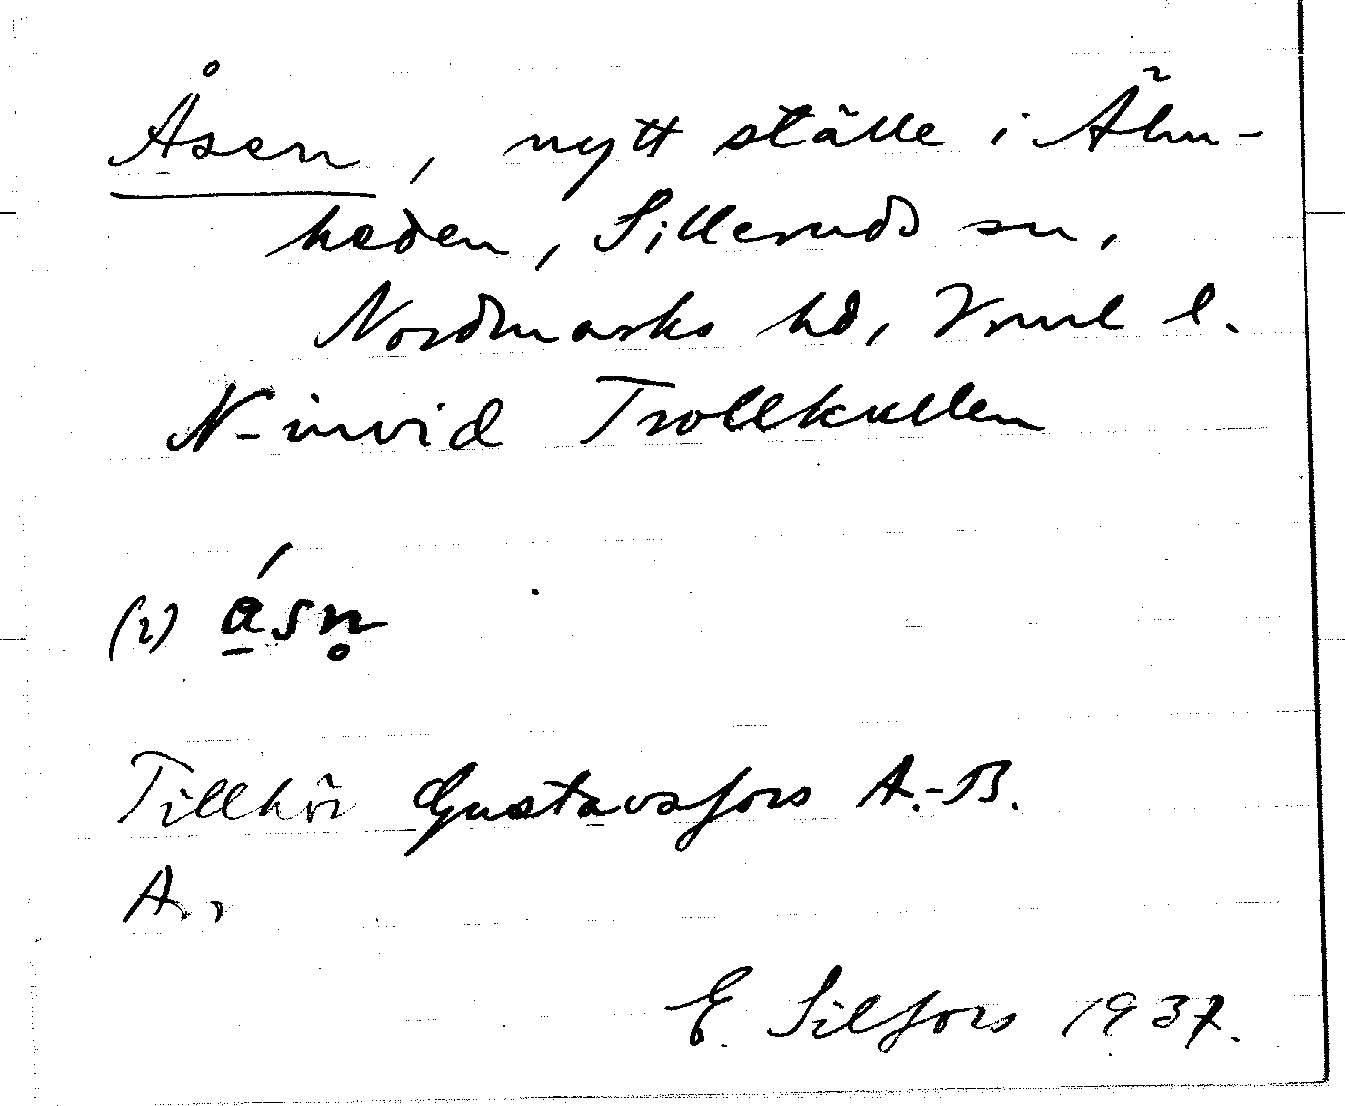 Åsen, nytt ställe i Älm-
heden, Silleruds sn,
Nordmarks hd, Vrml l.
N-invid Trollkullen
(2) a̠´sn̥
Tillhör Gustavsfors A.-B.
A..
E. Silfors 1937.